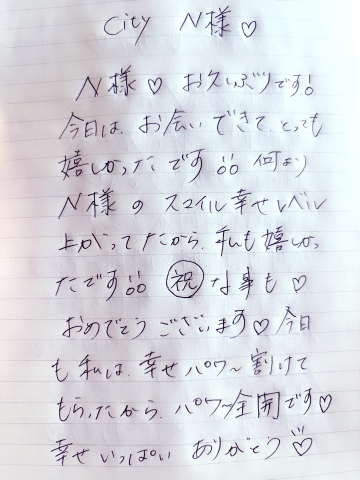 City N様♡
N様♡ お久しぶりです!
今日は、お会いできて、とっても
嬉しかったです♫ 何より
N様のスマイル幸せレベル
上がってたから、私も嬉しかっ
たです♫ ㊗な事も♡
おめでとうございます♡今日
も私は、幸せパワ〜割けて
もらったから、パワ〜全開です♡
幸せいっぱいありがとう♡